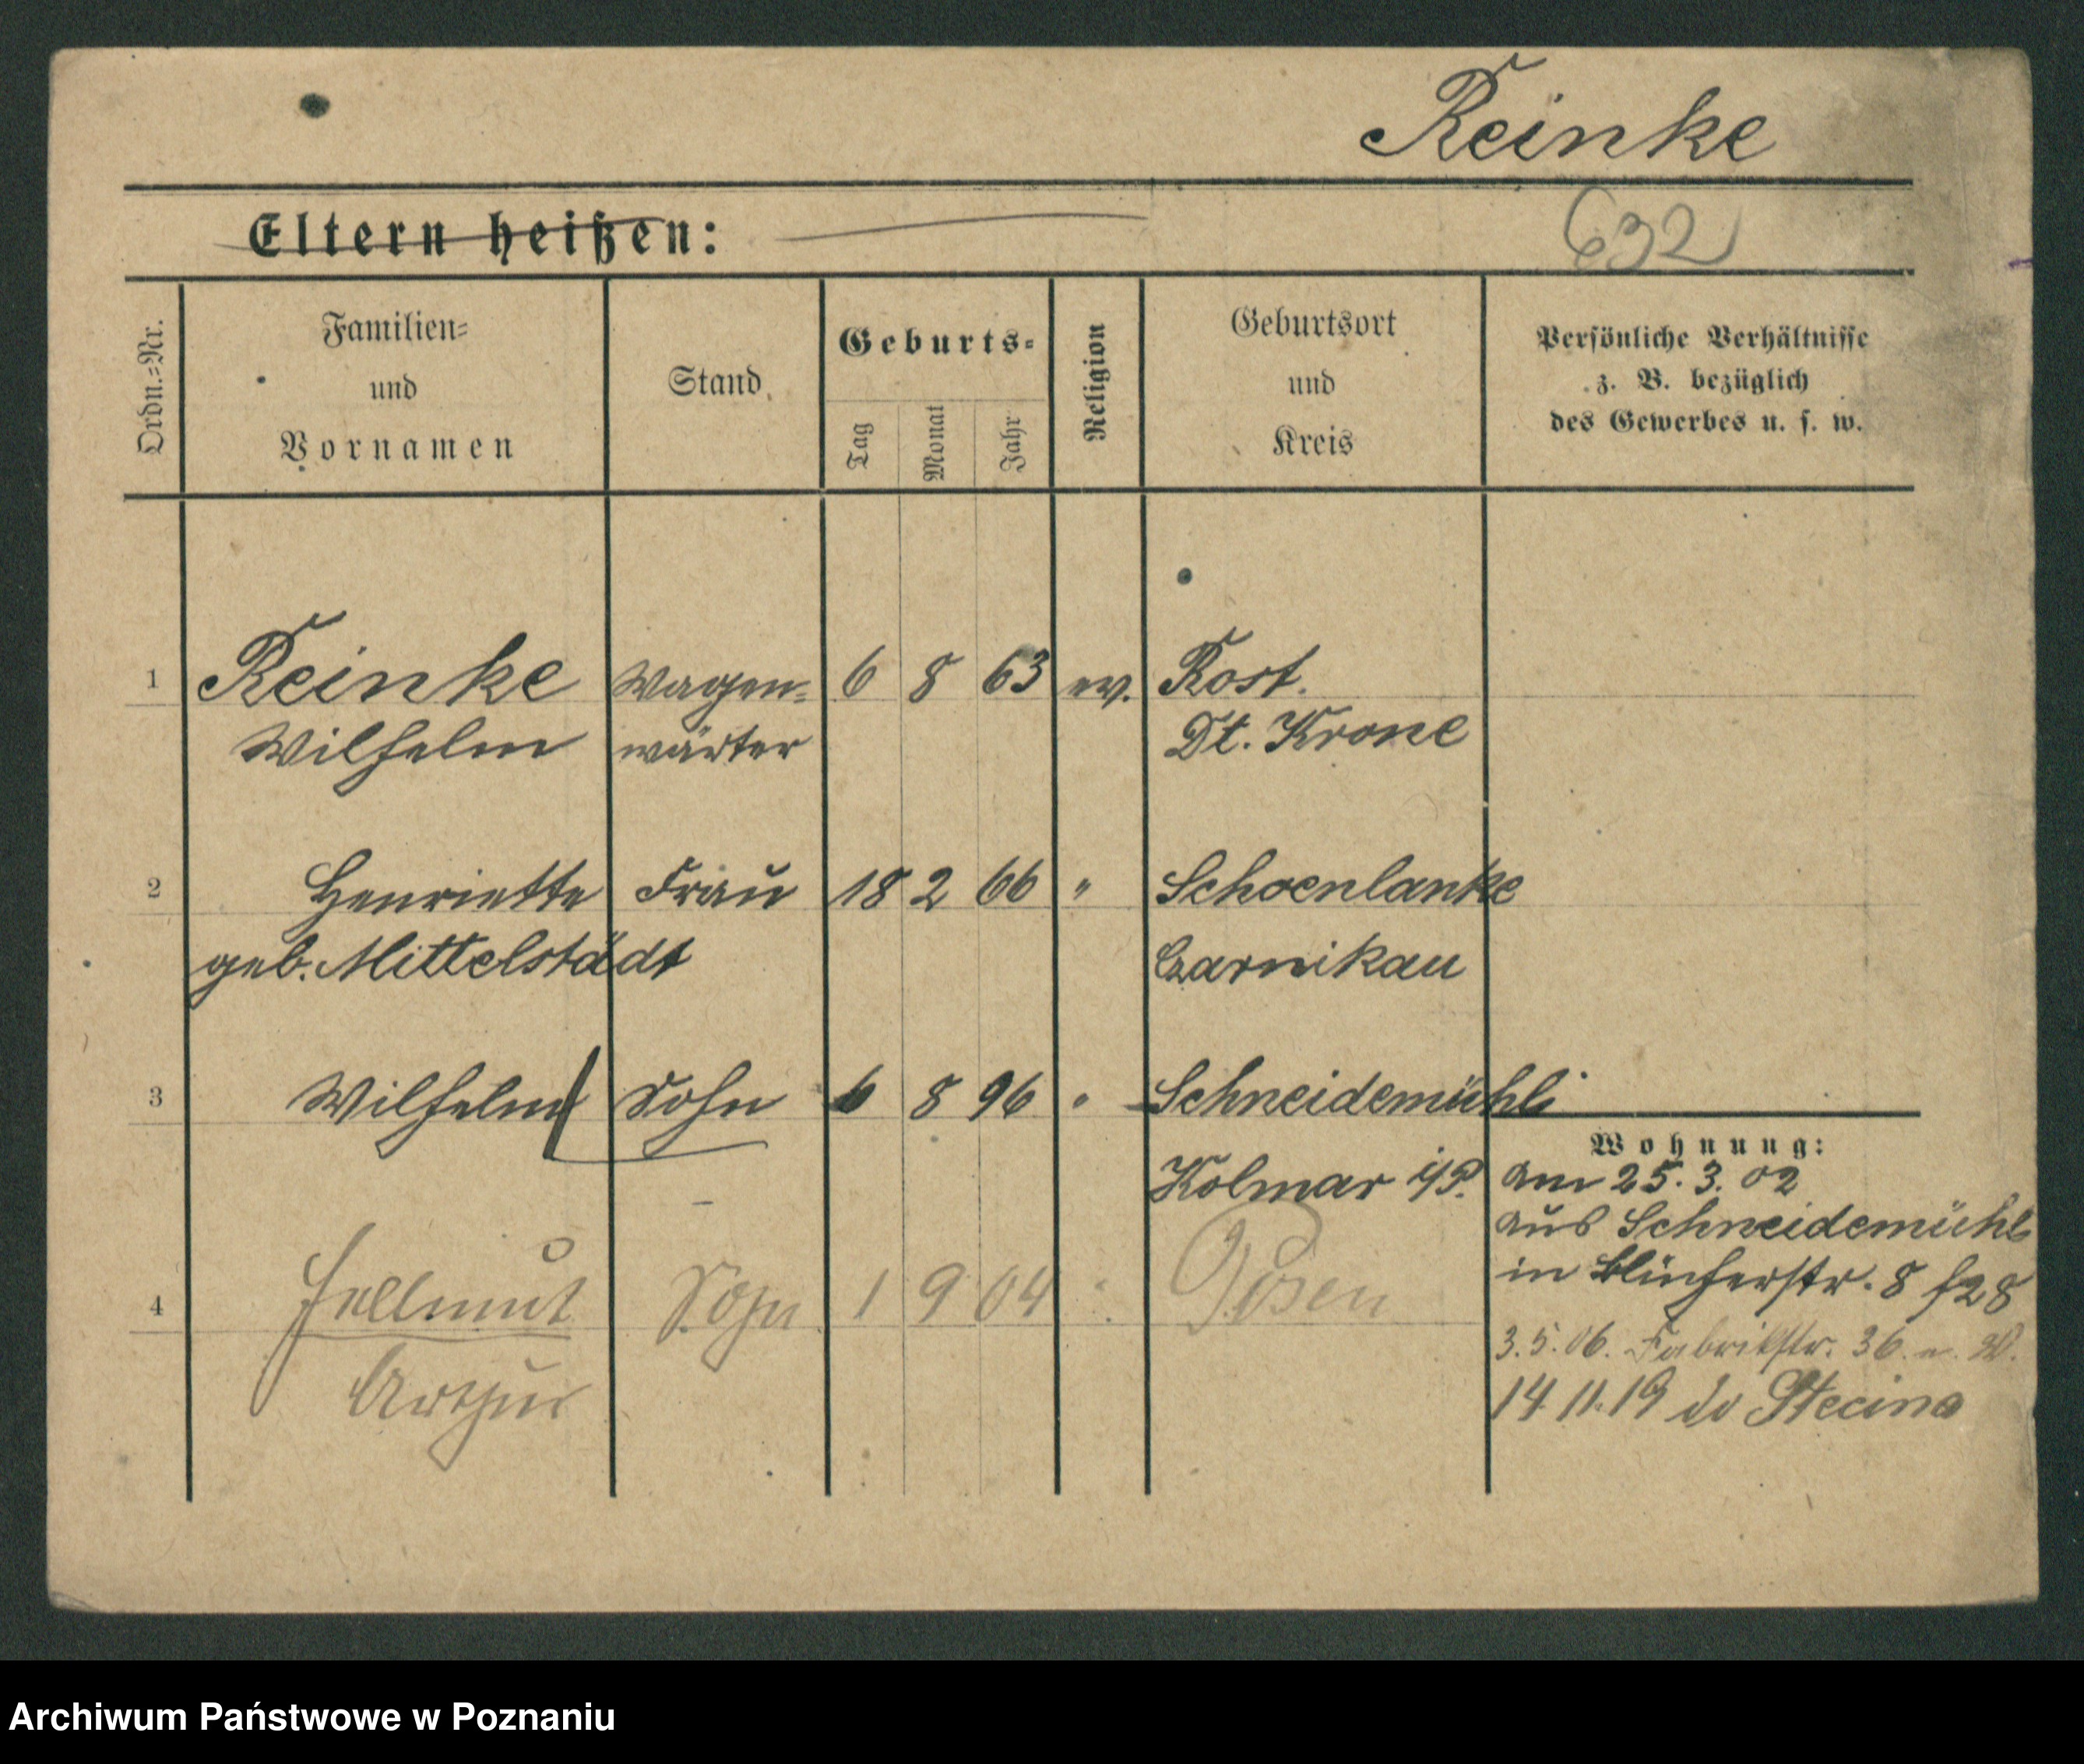 Reinke
Eltern heißen:
632
Ordn.=Nr.
Familien=
und
Vornamen
Stand
Geburts=
Tag
Monat
Jahr
Religion
Geburtsort
und
Kreis
Persönliche Verhältnisse
z. B. bezüglich
des Gewerbes u. s. w.
1 Reinke Wagen= 6 8 63 ev. Rost.
Wilhelm wärter Dt. Krone
2 Henriette Frau 18 2 66 " Schoenlanke
geb. Mittelstädt Czarnikau
3 Wilhelm Sohn 6 8 96 " Schneidemühl
Kolmar i/P.
4 Hellmut Sohn 1 9 04 Posen
Artur
Wohnung:
am 25. 3. 02
aus Schneidemühl
in Blücherstr. 8
3.5.06. Fabrikstr. 36.
14 11.19 do Stecina
Archiwum Państwowe w Poznaniu